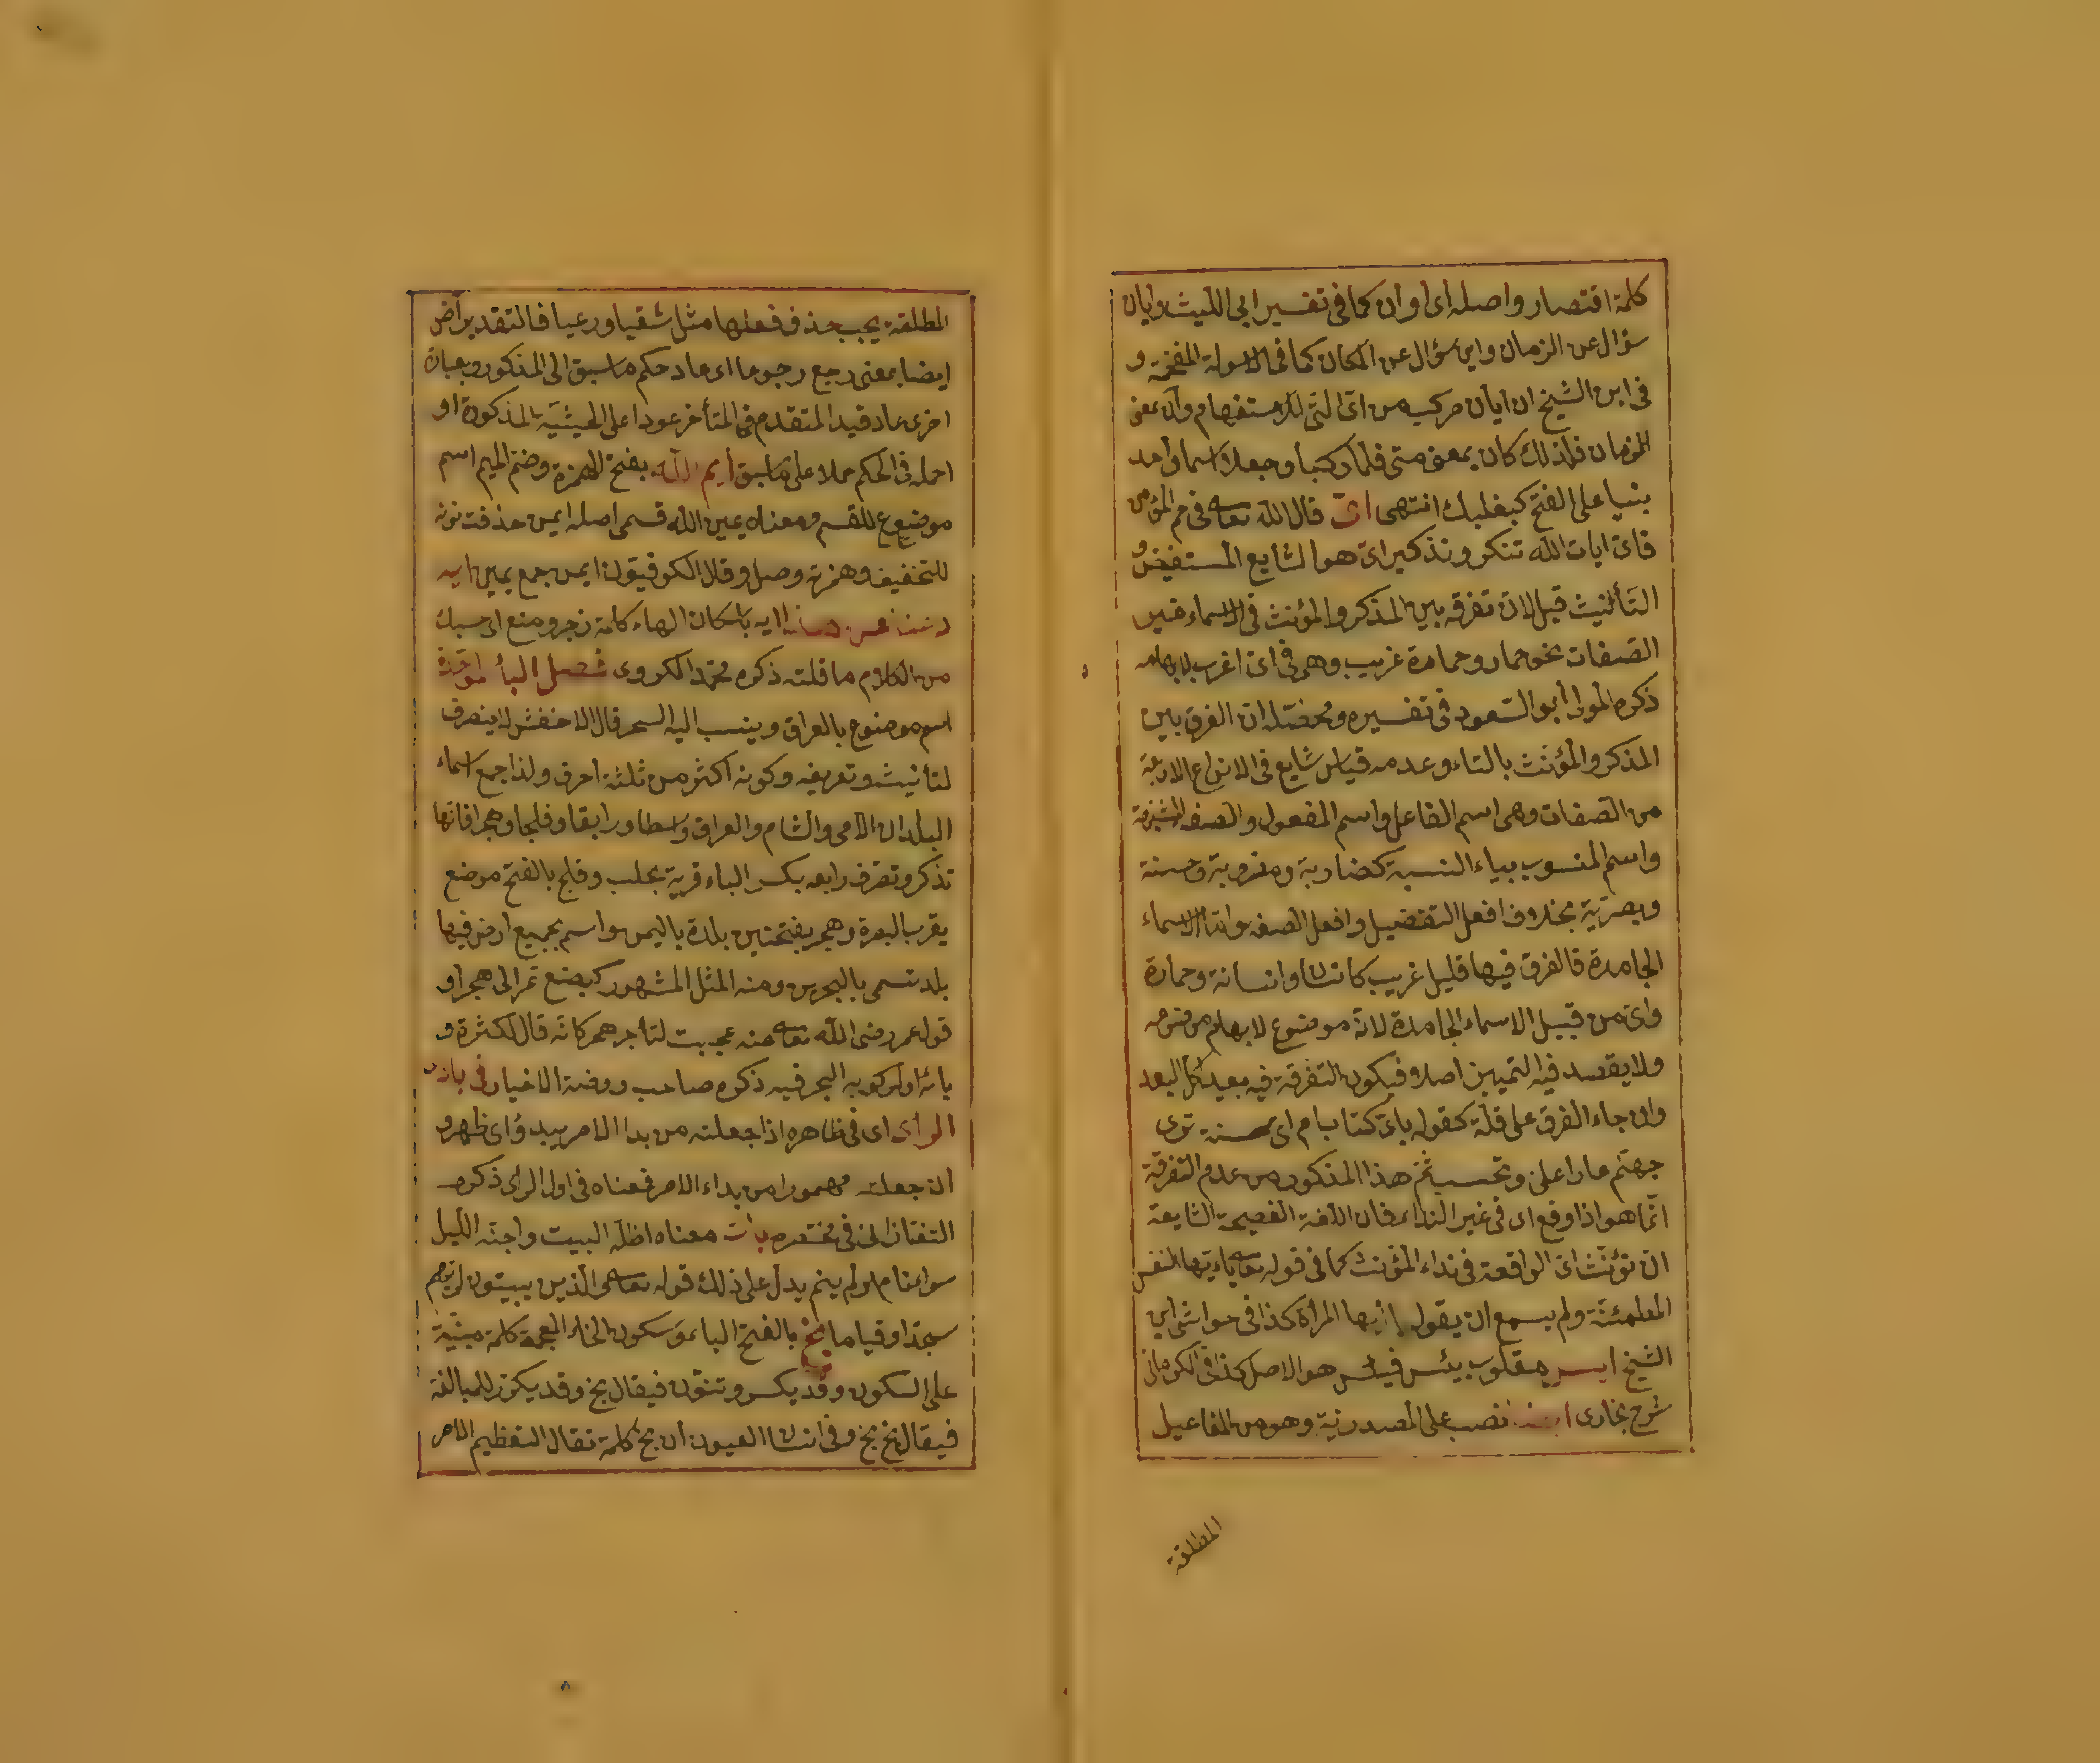 كلمة اقتصار واصله اى اوان كما فى تفسير ابى الليث وايان
سؤال عن الزمان واين سؤال عن المكان كما فى الاسولة المفخمة و
فى ابن الشيخ ان ايان مركبة من اى التى للاستفهام وان بمعنى
الزمان فلذلك كان بمعنى متى فلما ركبا وجعلا اسما واحد
بنيا على الفتح كبعلبك انتهى اى قال الله تعالى فى حم المؤمن
فاى ايات الله تنكرون تذكير اى هو الشايع المستفيض و
التأنيث قليل لان تفرقة بين المذكر والمؤنث فى الاسماء غير
الصفات نحو حمار وحمارة غريب وهى فى اى اغرب لابهامه
ذكره المولى أبو السعود فى تفسيره ومحصّله ان الفرق بين
المذكر والمؤنث بالتاء وعدمه قياس شايع فى الانواع الاربعة
من الصفات وهى اسم الفاعل واسم المفعول والصفة المشبهة
واسم المنسوب بياء النسبة كضاربة ومضروبة وحسنة
وبصرية بخلاف افعل التفضيل وافعل الصفة واما الاسماء
الجامدة فالفرق فيها قليل غريب كانسان وانسانة وحمارة
واى من قبيل الاسماء الجامدة لانه موضوع لابهام
ولا يقصد فيه التميين اصلا فيكون التفرقة فيه بعيد كل البعد
وان جاء الفرق على قلة كقوله باى كتاب ام اى سنة ترى
حبهم عارا على وتحسب ثم هذا المذكور من عدم التفرقة
انما هو اذا وقع اى فى غير النداء فان اللغة الفصيحة الشايعة
ان تؤنث اى الواقعة فى نداء المؤنث كما فى قوله تعالى ياءيتها النفس
المطمئنة ولم يسمع ان يقول يا أيها المرأة كذا فى حواشى ابن
الشيخ ايس مقلوب يئس فيئس هو الاصل كذا فى الكرمانى
شرح بخارى ايضا نصب على المصدرية وهو من المفاعيل
المطلقة
المطلقة يجب حذف فعلها مثل سقيا ورعيا فالتقدير اض
ايضا بمعنى رجع رجوعا اى عاد حكم ما سبق الى المذكور وبعبارة
اخرى عاد قيد المتقدم فى المتأخر عودا على الحيثية المذكورة او
احمله فى الحكم حملا على ما سبق أيم الله بفتح الهمزة وضم الميم اسم
موضوع للقسم ومعناه يمين الله قسمى اصله ايمن حذفت نونه
للتخفيف وهمزته وصل وقال الكوفيون ايمن جمع يمين ايه
ايه باسكان الهاء كلمة زجر ومنع اى حسبك
من الكلام ما قلته ذكره محمد الكروى فصل البأ الموحدة
اسم موضوع بالعراق وينسب اليه السحر قال الاخفش لا ينصرف
لتأنيث وتعريفه وكونه اكثر من ثلثة احرف ولذا جمع اسماء
البلدان الا منى والشام والعراق واسطا ورابقا وفلجا وهجرا فانها
تذكر وتصرف رابعه بكسر الباء قرية بحلب وفلج بالفتح موضع
بقرب البصرة وهجر بفتحتين بلدة باليمن واسم بجميع ارض فيها
بلد تسمى بالبحرين ومنه المثل المشهور كبضع تمر الى هجر او
قول عمر رضى الله تعالى عنه عجبت لتاجر هجر كانه قال لكثرة و
بائه او لركوبه البحر فيه ذكره صاحب روضة الاخيار فى بادى
الراى اى فى ظاهره اذا جعلته من بدا الامر يبدؤ اى ظهر و
ان جعلته مهموزا من بداء الامر فمعناه فى اول الراى ذكره
التفتازانى فى مختصره بات معناه اظله البيت واجنه الليل
سواء نام او لم ينم يدل على ذلك قوله تعالى والذين يبيتون لربهم
سجدا وقياما بخ بالفتح الباء وسكون الخاء المعجمة كلمة مبنية
على السكون وقد يكسر وتنون فيقال بخ وقد يكرر للمبالغة
فيقال بخ بخ وفى انسان العيون ان بخ كلمة تقال التعظيم الامر